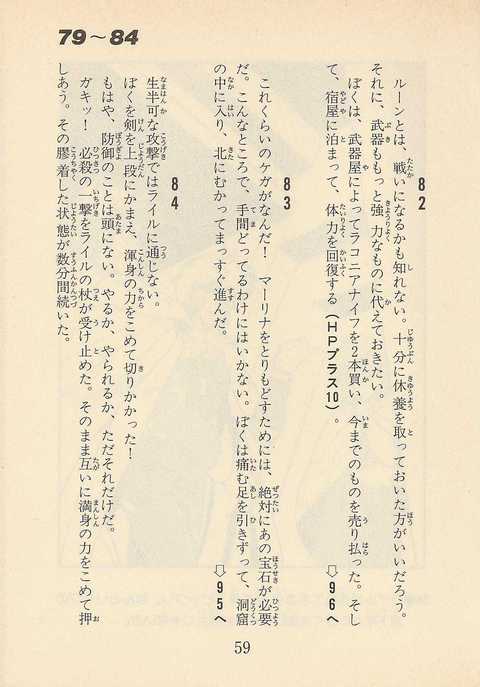 79〜84
82
ルーンとは、戦いになるかも知れない。十分に休養を取っておいた方がいいだろう。
それに、武器ももっと強力なものに代えておきたい。
ぼくは、武器屋によってラコニアナイフを2本買い、今までのものを売り払った。そし
て、宿屋に泊まって、体力を回復する(HPプラス10)。
⇨96へ
83
これくらいのケガがなんだ! マーリナをとりもどすためには、絶対にあの宝石が必要
だ。こんなところで、手間どってるわけにはいかない。ぼくは痛む足を引きずって、洞窟
の中に入り、北にむかってまっすぐ進んだ。
⇨95へ
84
生半可な攻撃ではライルに通じない。
ぼくを剣を上段にかまえ、渾身の力をこめて切りかかった!
もはや、防御のことは頭にない。やるか、やられるか、ただそれだけだ。
ガキッ! 必殺の一撃をライルの杖が受け止めた。そのまま互いに満身の力をこめて押
しあう。その膠着した状態が数分間続いた。
59